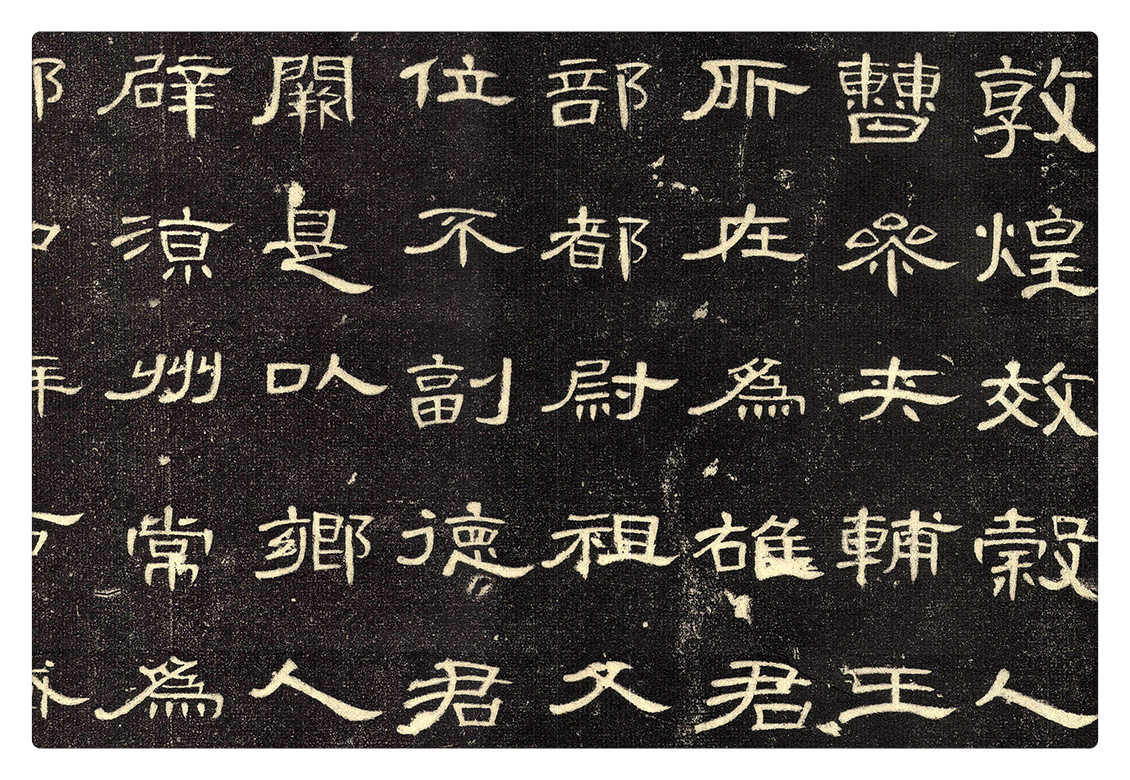 敦煌效穀人
曹參夾輔王
所在為雄君
部都尉祖父
位不副德君
闕是以鄉人
辟涼州常為